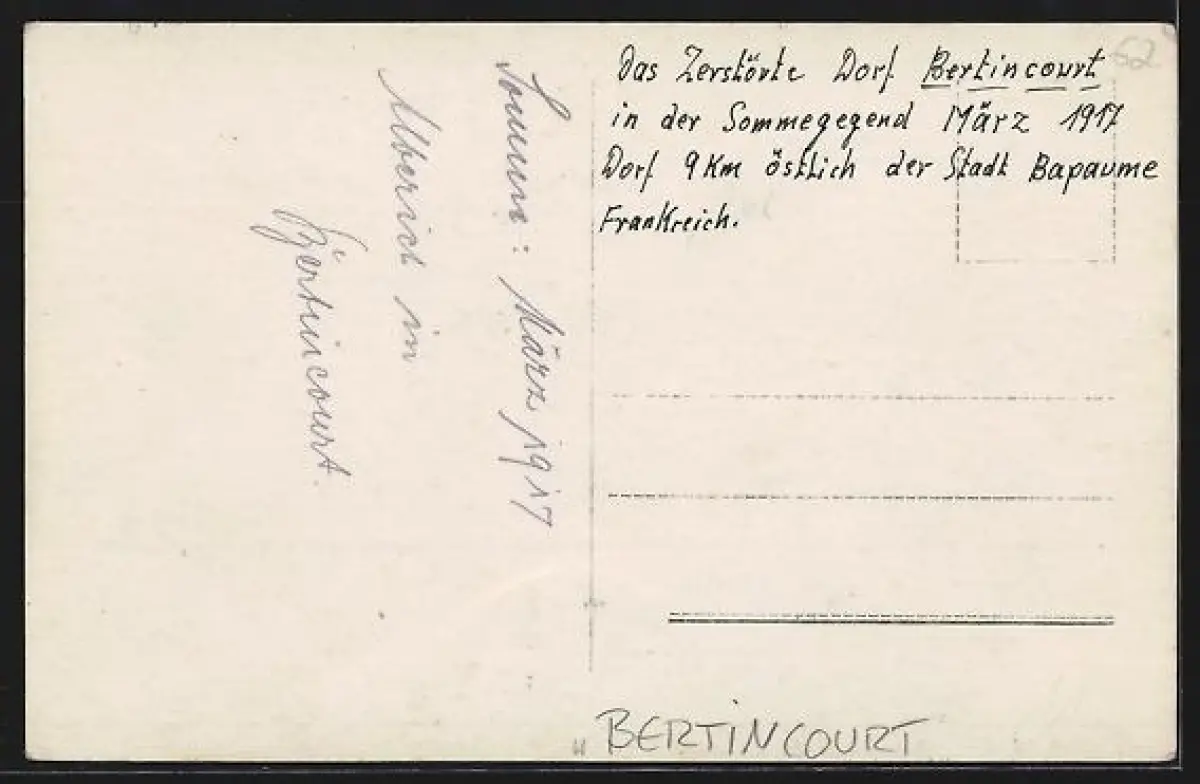 Somme: März 1917
Alberich in
Bertincourt.
Das Zerstörte Dorf Bertincourt
in der Sommegegend März 1917
Dorf 9 Km östlich der Stadt Bapaume
Frankreich.
52
BERTINCOURT